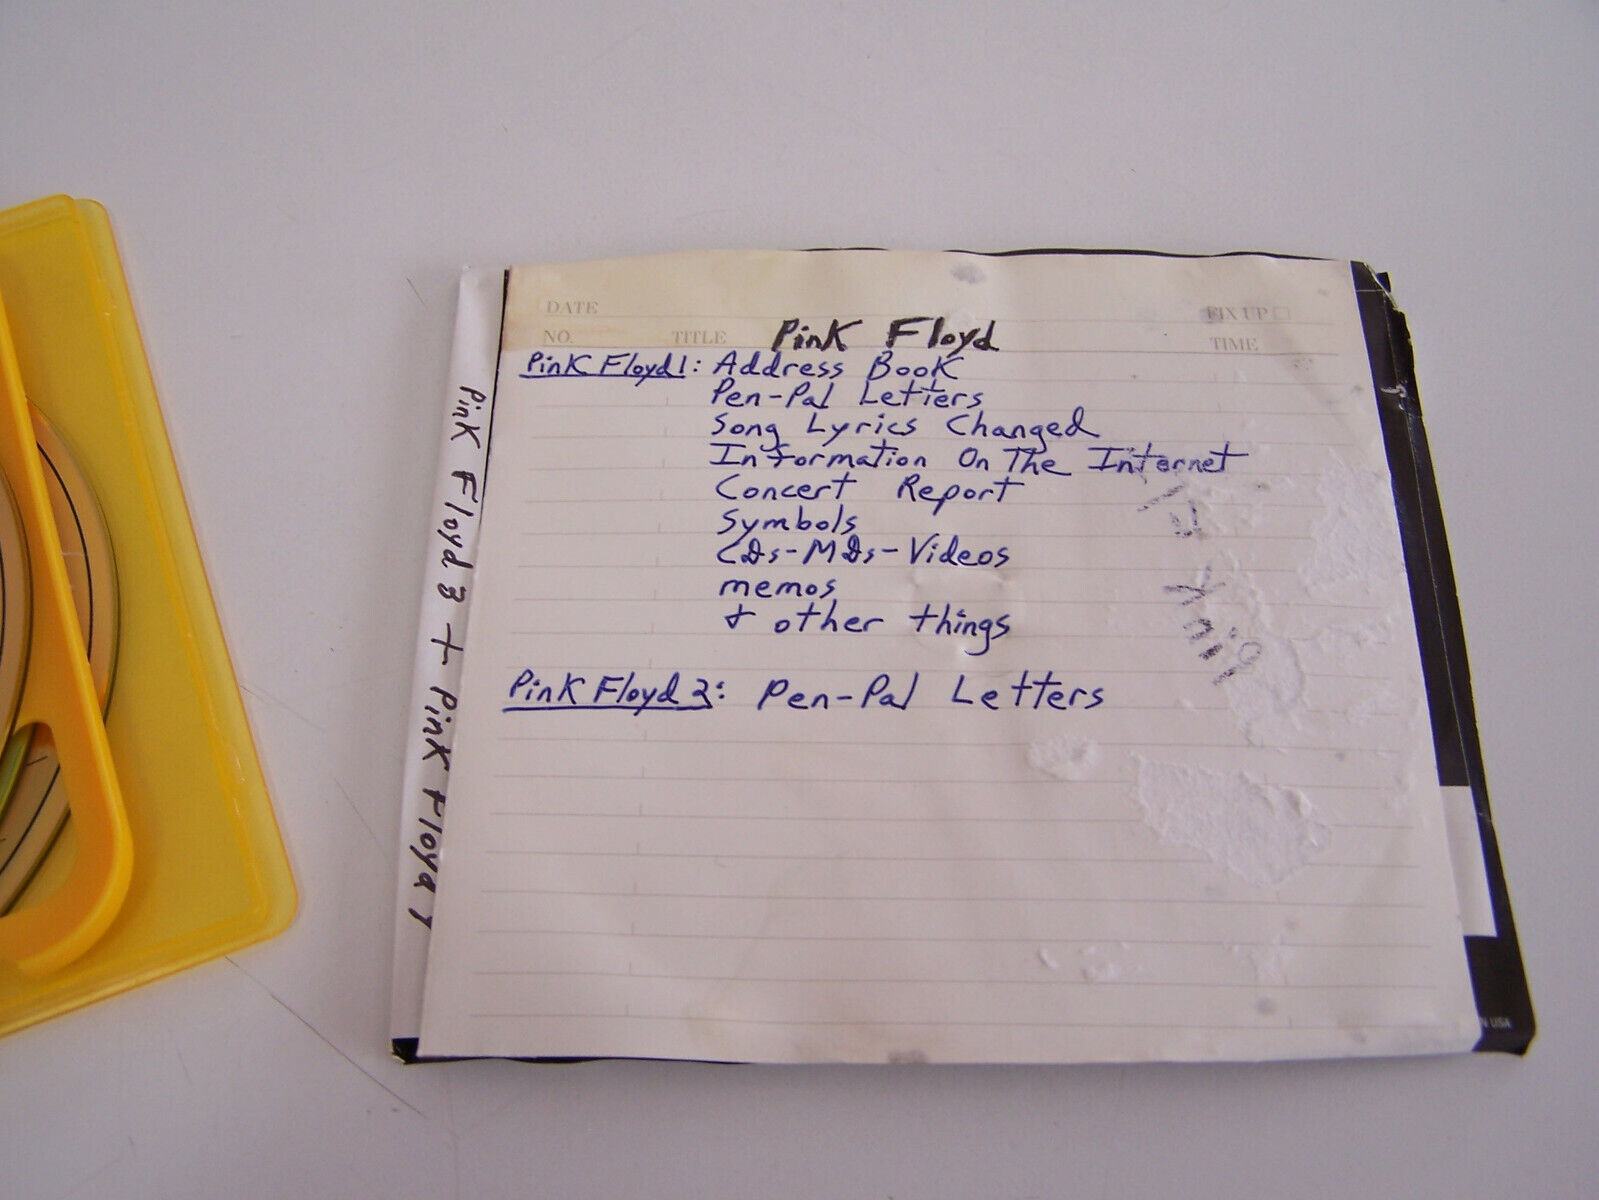 DATE
FIX UP
NO. TITLE Pink Floyd TIME
Pink Floyd 1: Address Book
Pen-Pal Letters
Song Lyrics Changed
Information On The Internet
Concert Report
Symbols
CDs-MDs-Videos
memos
+ other things
Pink Floyd 2: Pen-Pal Letters
Pink Floyd + Pink Floyd 1
Pink Fl
USA